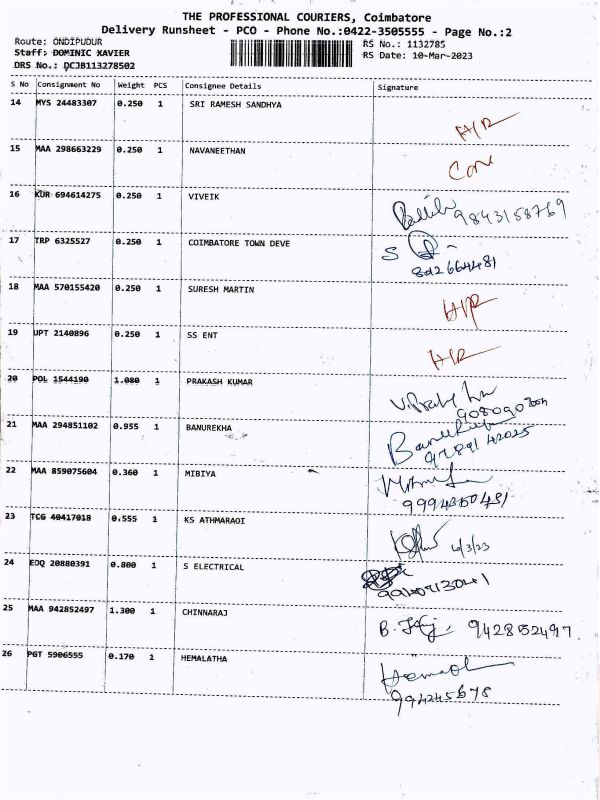 THE PROFESSIONAL COURIERS, Coimbatore
Delivery Runsheet - PCO - Phone No.:0422-3505555 - Page No.:2
Route: ONDIPUDUR
Staff: DOMINIC XAVIER
DRS No.: DCJB113278502
RS No.: 1132785
RS Date: 10-Mar-2023
S No Consignment No Weight PCS Consignee Details Signature
14 MYS 24483307 0.250 1 SRI RAMESH SANDHYA
H/R
15 MAA 298663229 0.250 1 NAVANEETHAN
16 KUR 694614275 0.250 1 VIVEIK
9843158769
17 TRP 6325527 0.250 1 COIMBATORE TOWN DEVE
18 MAA 570155420 0.250 1 SURESH MARTIN
H/R
19 UPT 2140896 0.250 1 SS ENT
H/R
20 POL 1544190 1.080 1 PRAKASH KUMAR
21 MAA 294851102 0.955 1 BANUREKHA
22 MAA 859075604 0.360 1 MIBIYA
23 TCG 40417018 0.555 1 KS ATHMARAOI
24 EDQ 20880391 0.800 1 S ELECTRICAL
25 MAA 942852497 1.300 1 CHINNARAJ
9428152497
26 PGT 5906555 0.170 1 HEMALATHA